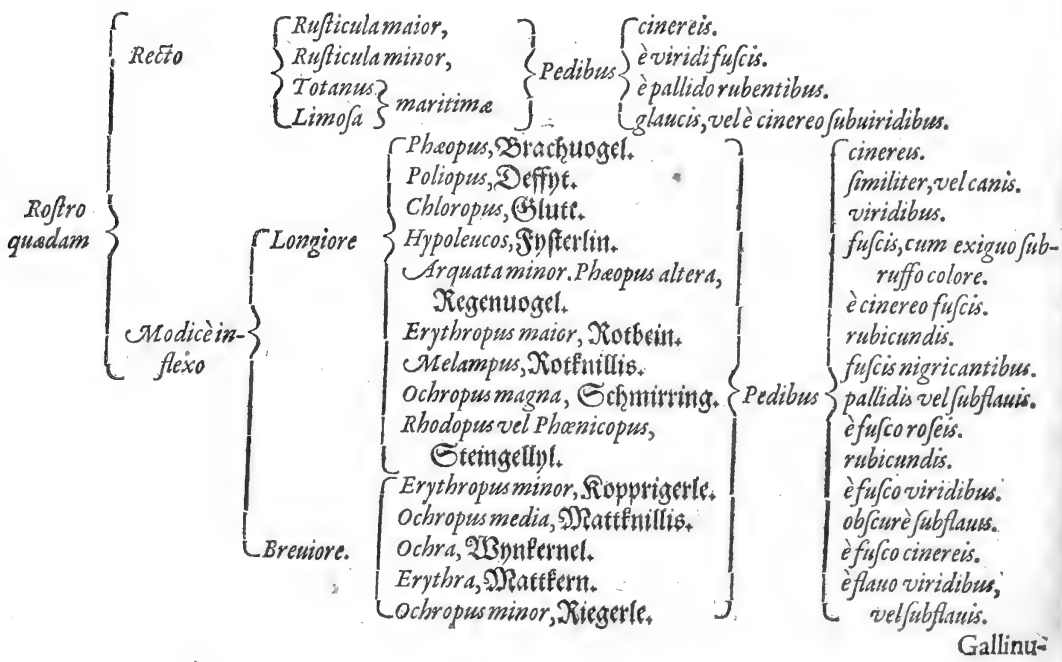 Rostro
quædam
Recto
Rusticula maior,
Rusticula minor,
Totanus
Limosa
maritimæ
Pedibus
cinereis.
è viridi fuscis.
è pallido rubentibus.
glaucis, vel è cinereo subuiridibus.
Modicè in-
flexo
Longiore
Phæopus, Brachuogel.
Poliopus, Deffyt.
Chloropus, Glutt.
Hypoleucos, Fysterlin.
Arquata minor. Phæopus altera,
Regenuogel.
Erythropus maior, Rotbein.
Melampus, Rotknillis.
Ochropus magna, Schmirring.
Rhodopus vel Phœnicopus,
Steingellyl.
Breuiore.
Erythropus minor, Kopprigerle.
Ochropus media, Mattknillis.
Ochra, Wynkernel.
Erythra, Mattkern.
Ochropus minor, Riegerle.
Pedibus
cinereis.
similiter, vel canis.
viridibus.
fuscis, cum exiguo sub-
ruffo colore.
è cinereo fuscis.
rubicundis.
fuscis nigricantibus.
pallidis vel subflauis.
è fusco roseis.
rubicundis.
è fusco viridibus.
obscurè subflauis.
è fusco cinereis.
è flauo viridibus,
vel subflauis.
Gallinu-